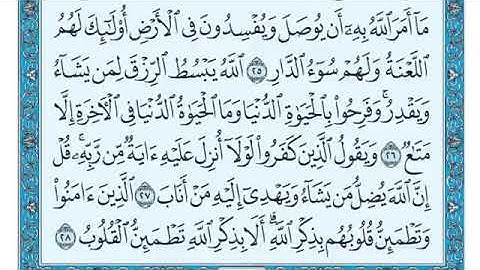 مَآ أَمَرَ ٱللَّهُ بِهِۦٓ أَن يُوصَلَ وَيُفْسِدُونَ فِى ٱلْأَرْضِ أُو۟لَٰٓئِكَ لَهُمُ
ٱللَّعْنَةُ وَلَهُمْ سُوٓءُ ٱلدَّارِ ٢٥ ٱللَّهُ يَبْسُطُ ٱلرِّزْقَ لِمَن يَشَآءُ
وَيَقْدِرُ ۚ وَفَرِحُوا۟ بِٱلْحَيَوٰةِ ٱلدُّنْيَا وَمَا ٱلْحَيَوٰةُ ٱلدُّنْيَا فِى ٱلْأَخِرَةِ إِلَّا
مَتَٰعٌ ٢٦ وَيَقُولُ ٱلَّذِينَ كَفَرُوا۟ لَوْلَآ أُنزِلَ عَلَيْهِ ءَايَةٌ مِّن رَّبِّهِۦ ۗ قُلْ
إِنَّ ٱللَّهَ يُضِلُّ مَن يَشَآءُ وَيَهْدِىٓ إِلَيْهِ مَنْ أَنَابَ ٢٧ ٱلَّذِينَ ءَامَنُوا۟
وَتَطْمَئِنُّ قُلُوبُهُم بِذِكْرِ ٱللَّهِ ۗ أَلَا بِذِكْرِ ٱللَّهِ تَطْمَئِنُّ ٱلْقُلُوبُ ٢٨